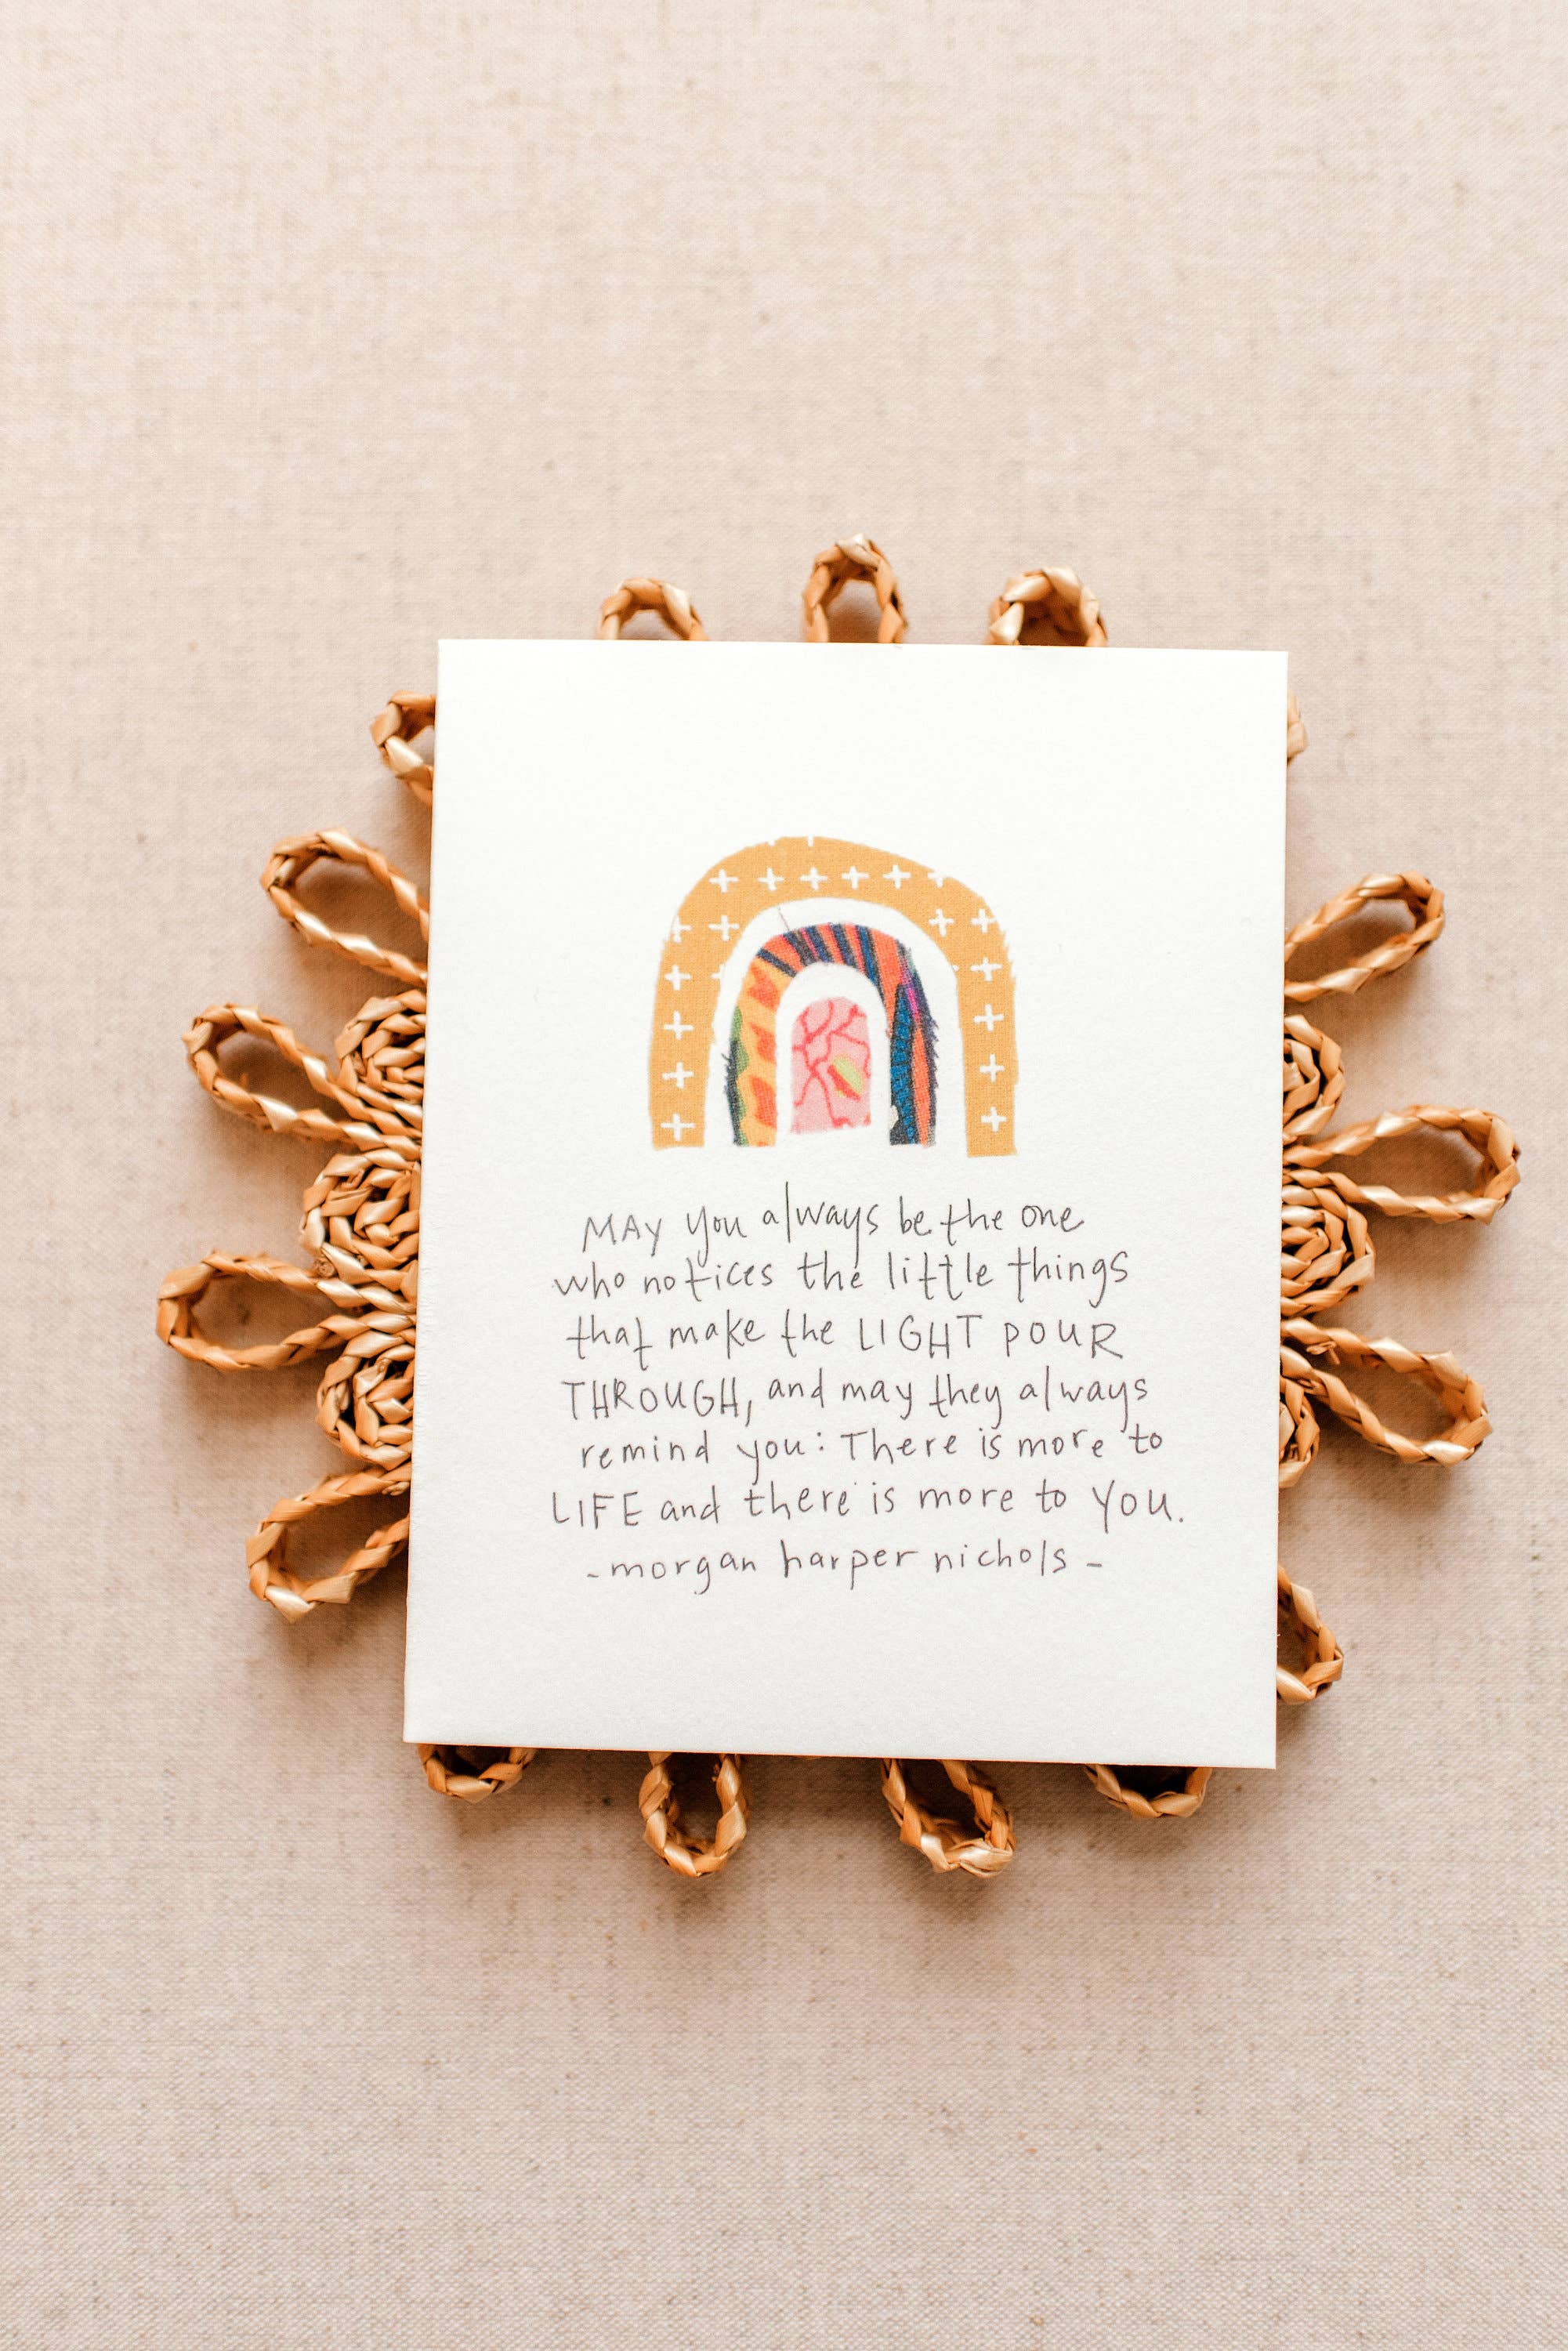 MAY you always be the one
who notices the little things
that make the LIGHT POUR
THROUGH, and may they always
remind you: There is more to
LIFE and there is more to YOU.
-morgan harper nichols-